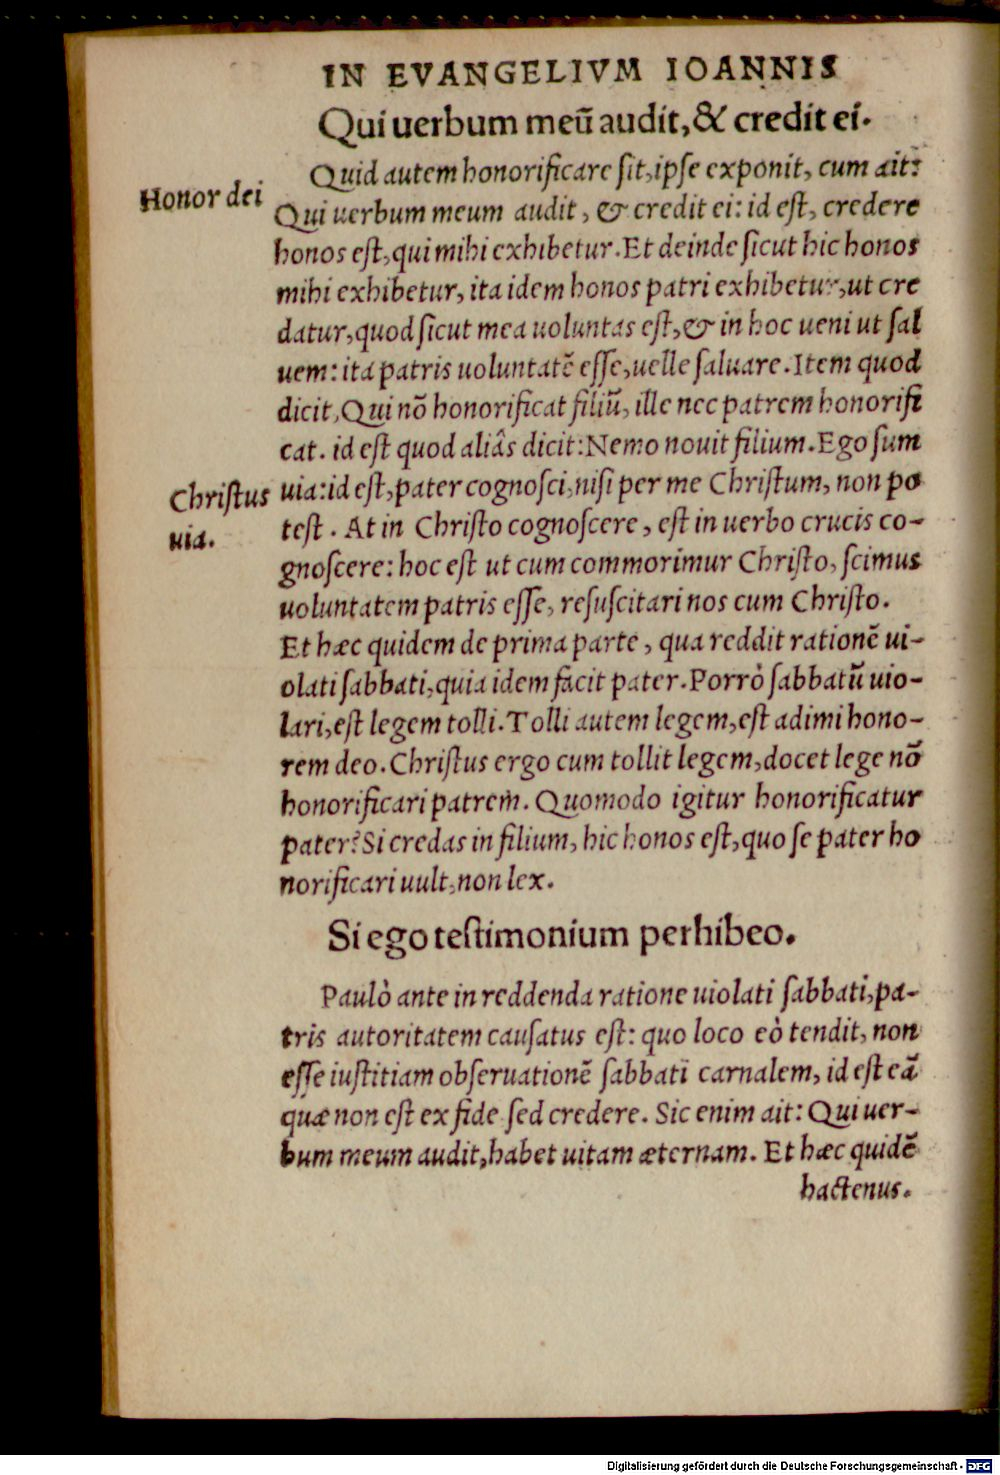 IN EVANGELIVM IOANNIS
Qui uerbum meũ audit, & credit ei.
Quid autem honorificare sit, ipse exponit, cum ait:
Honor dei
Qui uerbum meum audit, & credit ei: id est, credere
honos est, qui mihi exhibetur. Et deinde sicut hic honos
mihi exhibetur, ita idem honos patri exhibetur, ut cre
datur, quod sicut mea uoluntas est, & in hoc ueni ut sal
uem: ita patris uoluntatẽ esse, uelle saluare. Item quod
dicit, Qui nõ honorificat filiũ, ille nec patrem honorifi
cat. id est quod aliâs dicit: Nemo nouit filium. Ego sum
Christus
uia.
uia: id est, pater cognosci, nisi per me Christum, non po
test. At in Christo cognoscere, est in uerbo crucis co-
gnoscere: hoc est ut cum commorimur Christo, scimus
uoluntatem patris esse, resuscitari nos cum Christo.
Et hæc quidem de prima parte, qua reddit rationẽ ui-
olati sabbati, quia idem facit pater. Porrò sabbatũ uio-
lari, est legem tolli. Tolli autem legem, est adimi hono-
rem deo. Christus ergo cum tollit legem, docet lege nõ
honorificari patrem. Quomodo igitur honorificatur
pater? Si credas in filium, hic honos est, quo se pater ho
norificari uult, non lex.
Si ego testimonium perhibeo.
Paulò ante in reddenda ratione uiolati sabbati, pa-
tris autoritatem causatus est: quo loco eò tendit, non
esse iustitiam obseruationẽ sabbati carnalem, id est eã
quæ non est ex fide sed credere. Sic enim ait: Qui uer-
bum meum audit, habet uitam æternam. Et hæc quidẽ
hactenus.
Digitalisierung gefördert durch die Deutsche Forschungsgemeinschaft - DFG